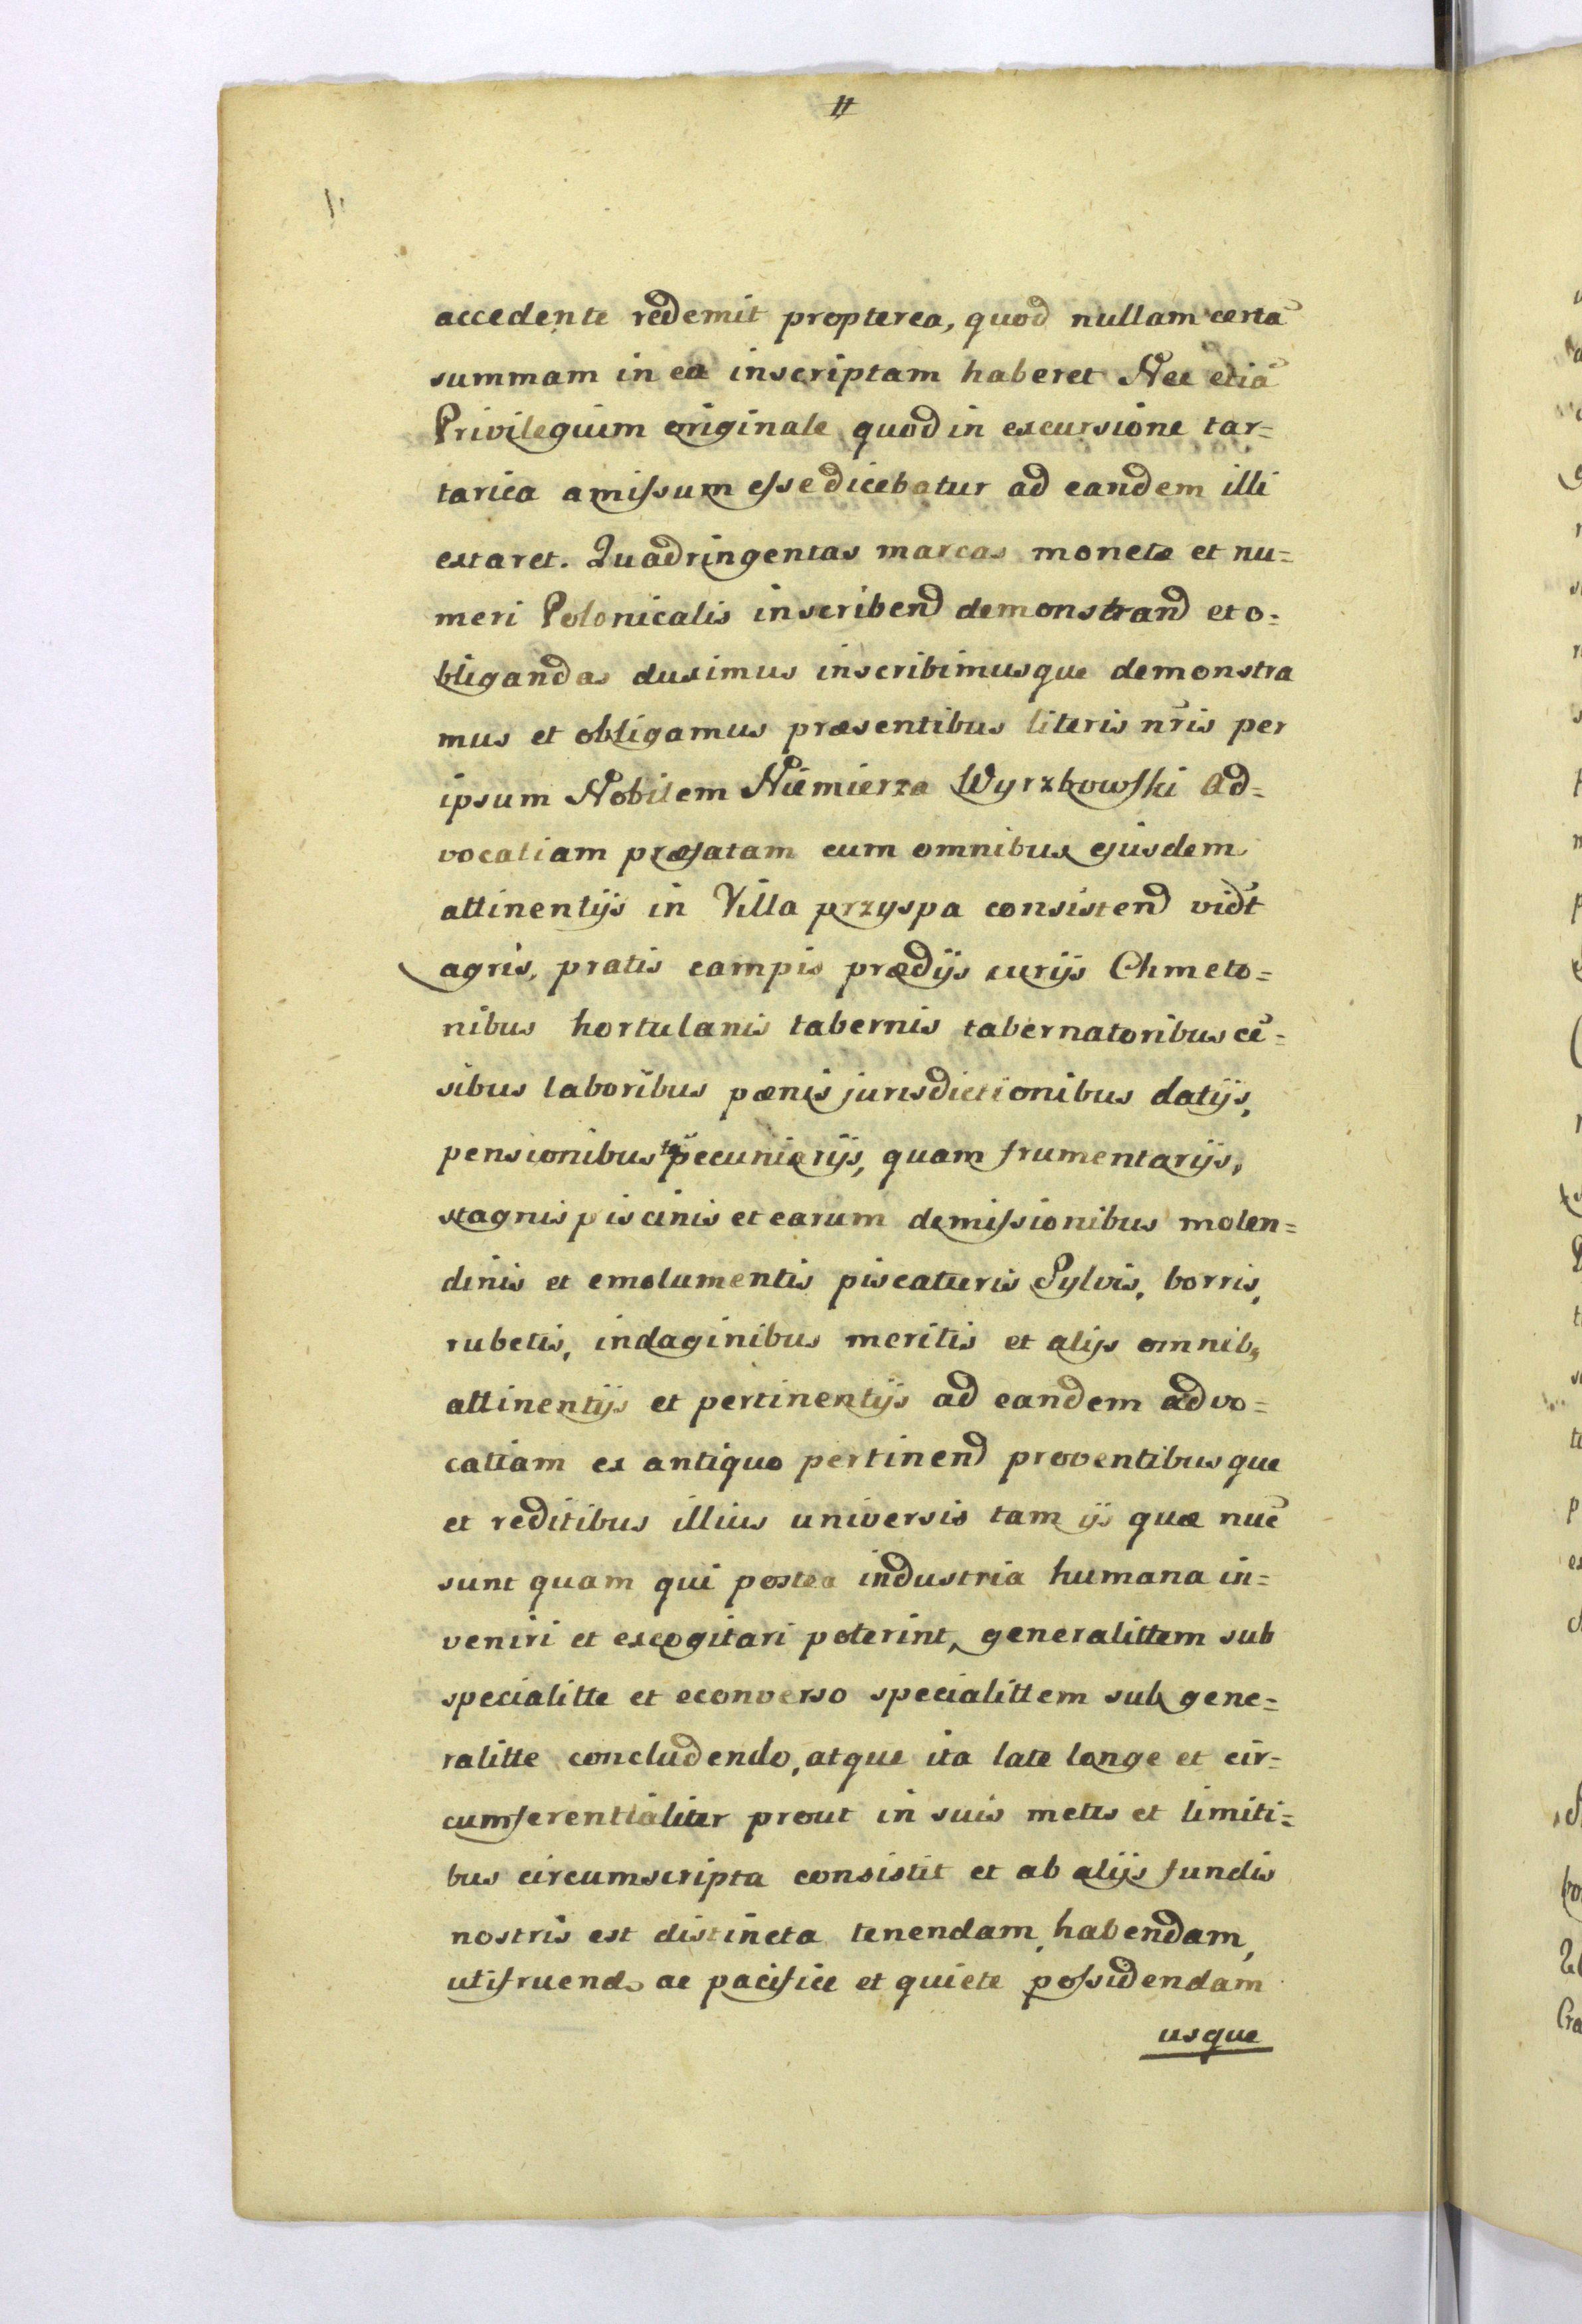 11
accedente redemit propterea, quod nullam certã
summam in ea inscriptam haberet Nec etiã
Privilegium originale quod in excursione tar=
tarica amissum esse dicebatur ad eandem illi
extaret. Quadringentas marcas moneta et nu=
meri Polonicalis inscribend demonstrand et o=
bligandas duximus inscribimusque demonstra
mus et obligamus præsentibus literis nr̃is per
ipsum Nobilem Niemierza Wyrzbowski Ad=
vocatiam præfatam cum omnibus ejusdem
attinentijs in Villa przyspa consistend vidt
agris, pratis campis prædijs curijs Chmeto=
nibus hortulanis tabernis tabernatoribus cẽ=
sibus laboribus pœnis jurisdictionibus datijs,
pensionibus tã pecuniarijs, quam frumentarijs,
stagnis piscinis et earum demissionibus molen=
dinis et emolumentis piscaturis Sylvis, borris,
rubetis, indaginibus meritis et alijs omnib,
attinentijs et pertinentijs ad eandem advo=
catiam ex antiquo pertinend proventibusque
et reditibus illius universis tam ijs quæ nuc̃
sunt quam qui postea industria humana in=
veniri et excogitari poterint, generalittem sub
specialitte et econverso specialittem sub gene=
ralitte concludendo, atque ita late longe et cir=
cumferentialiter prout in suis metis et limiti=
bus circumscripta consistit et ab alijs fundis
nostris est distincta tenendam, habendam,
utifruend. ac pacifice et quiete possidendam
usque